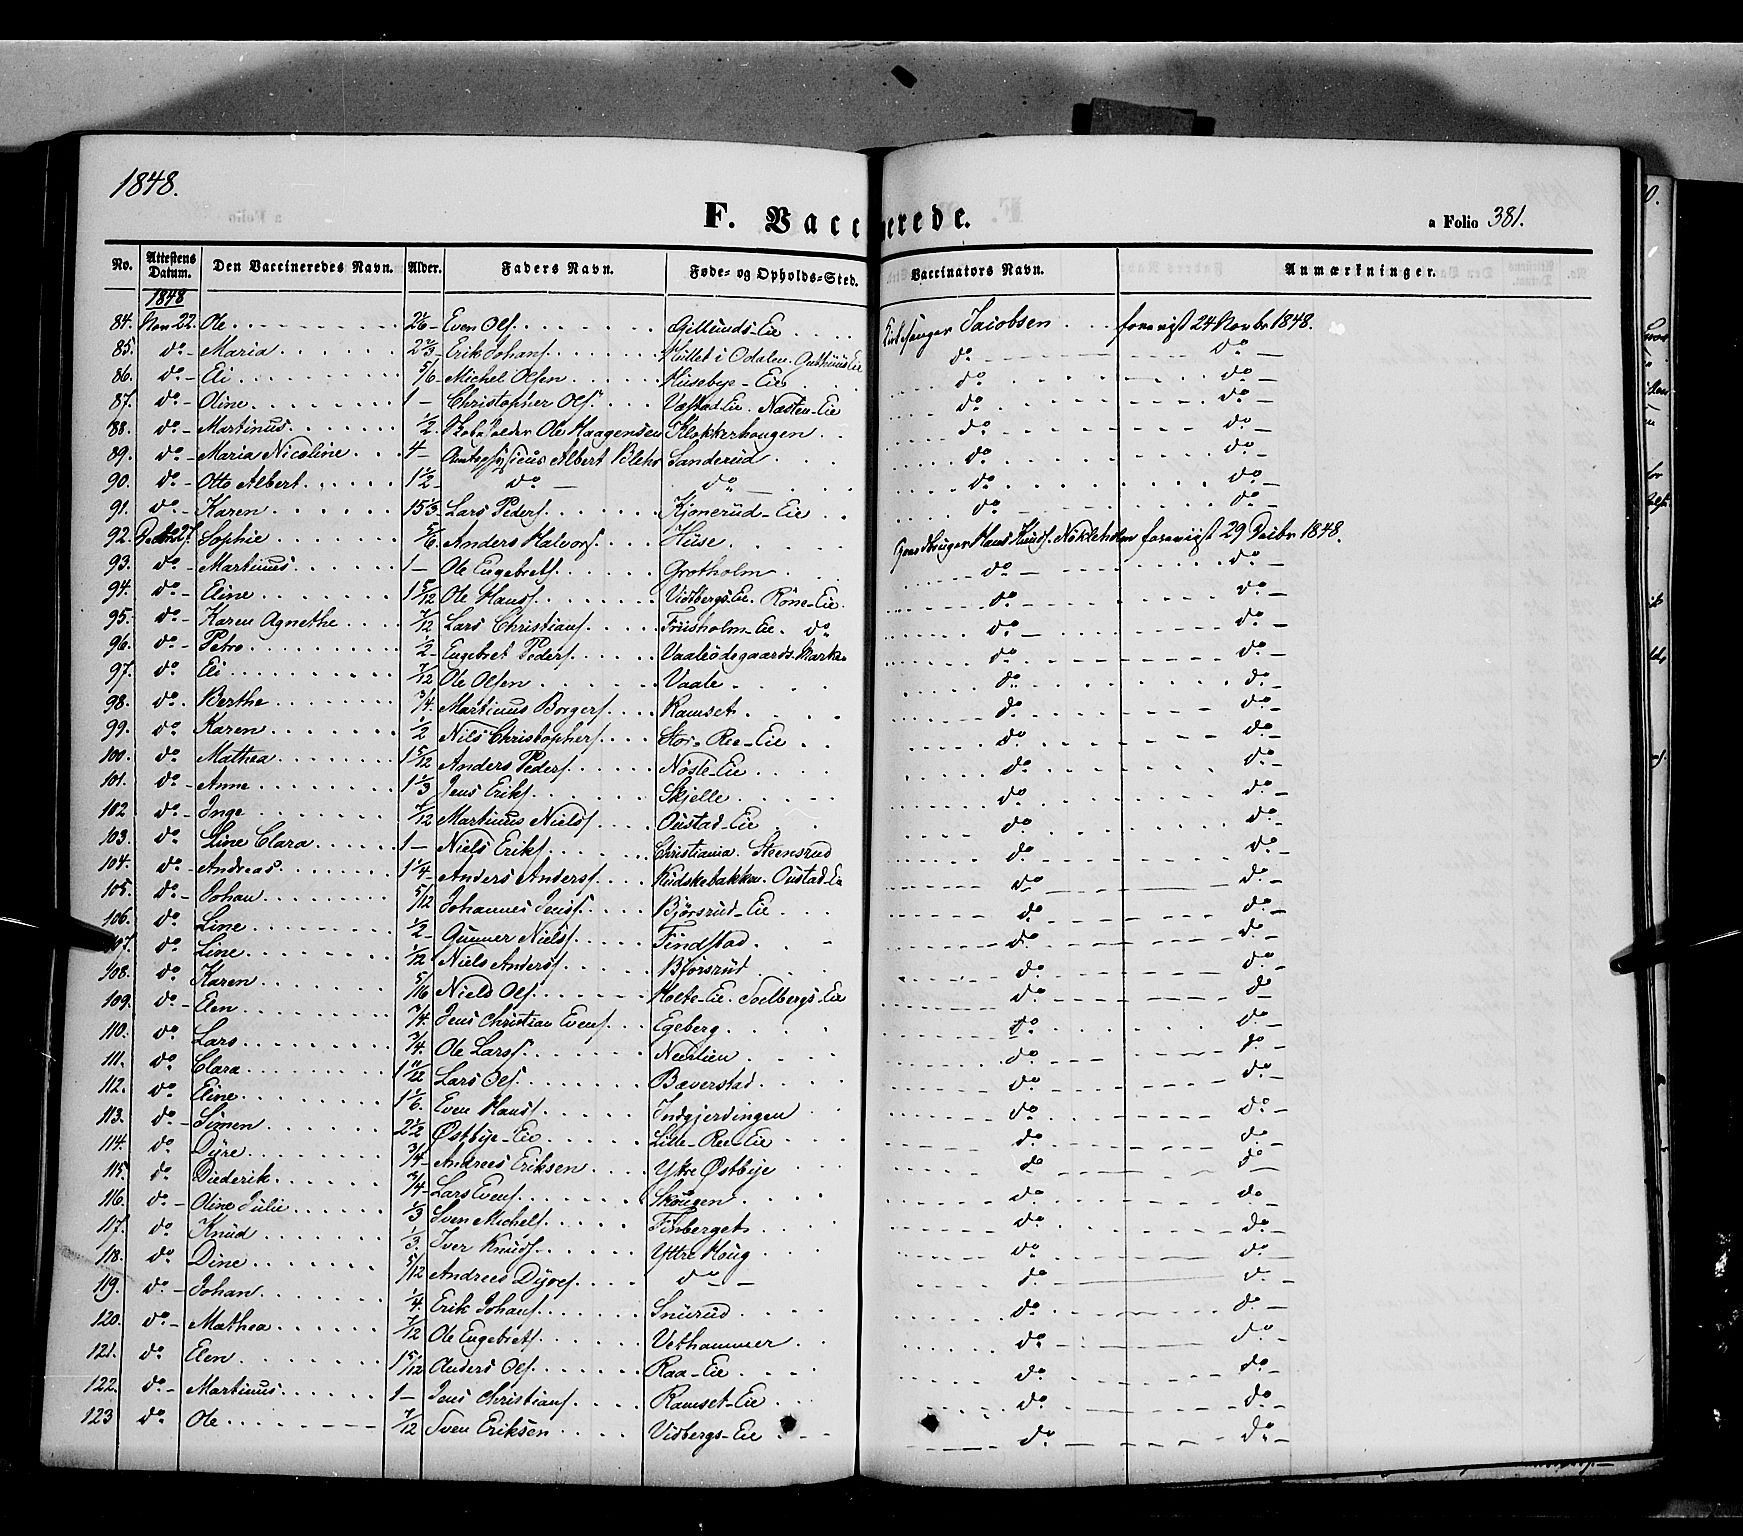 1848.
F. Vaccinerede.
a Folio 381.
No. Attestens Datum. Den Vaccineredes Navn. Alder. Faders Navn. Føde- og Opholds-Sted. Vaccinators Navn. Anmærkninger.
1848
84. Nov 22. Ole 2½ Even Olsſ. Gillunds-Eie Kirkesanger Jacobsen foreviist 24 Novbr 1848.
85. do Maria 2⅔ Erik Johansſ. Hullet i Odalen. do do
86. do Eli 5/6 Michel Olsen Husebye-Eie do do
87. do Oline 1 Christopher Olsſ. Væstad-Eie. Næsten-Eie do do
88. do Martinus ½ Ole Haagensen Klokkerhougen do do
89. do Maria Nicoline 4 Amtsphysicus Albert Blehr Sanderud do do
90. do Otto Albert 1½ do do do do
91. do Karen 15⅓ Lars Pedersſ. Kjonerud-Eie do do
92. Decbr 27. Sophie 5/6 Anders Halvorsſ. Huse Hans Knudsſ. Nökleholm foreviist 29 Decbr 1848.
93. do Martinus 1 Ole Engebretsſ. Grotholm do do
94. do Eline 1 5/12 Ole Hansſ. Vidbergs-Eie. Röne-Eie. do do
95. do Karen Agnethe 7/12 Lars Christiansſ. Friisholm-Eie. do do do
96. do Petro ½ Engebret Pedersſ. Vaaleödegaards Marken do do
97. do Eli 7/12 Ole Olsen Vaale do do
98. do Berthe ¾ Martinus Borgersſ. Ramset do do
99. do Karen ½ Nils Christophersſ. Stor-Ree-Eie do do
100. do Mathea 1 5/12 Anders Pedersſ. Nöste-Eie do do
101. do Anne 1⅓ Jens Eriksſ. Skjelle do do
102 do Inge 7/12 Martinus Nielsſ. Oustad-Eie do do
103. do Line Clara 1 Niels Eriksſ. Christiania. Steensrud do do
104. do Andreas 1¼ Anders Andersſ. Kudskebakken. Oustad-Eie do do
105. do Johan 5/12 Johannes Jensſ. Björsrud-Eie do do
106. do Line ½ Gunner Nielsſ. Findstad do do
107. do Line 1/12 Niels Andersſ. Björsrud do do
108. do Karen 5/16 Niels Olsſ. Hoete-Eie. Soelbergs-Eie do do
109. do Elen ¾ Jens Christian Evensſ. Egeberg do do
110. do Lars ¾ Ole Larsſ. Neerlien do do
111. do Clara 1 11/12 Lars Olsſ. Bæverstad do do
112. do Eline 1 1/6 Even Hansſ. Indgjerdingen do do
113. do Simen 2½ Østbye-Eie Lille-Ree-Eie do do
114. do Dyre ¾ Andrees Eriksen Ytre Østbye do do
115. do Diederik ¾ Lars Evensſ. Skougen do do
116. do Oline Julie ⅓ Sven Michelsſ. Finberget do do
117. do Knud ⅓ Iver Knudsſ. Yttre Houg do do
118. do Dine 5/12 Andrees Dyresſ. do do do
119. do Johan ¼ Erik Johansſ. Snurud do do
120. do Mathea 7/12 Ole Engebretsſ. Vethammer do do
121. do Elen 1 5/12 Anders Olsſ. Raa-Eie do do
122. do Martinus 1 Jens Christiansſ. Ramset-Eie do do
123 do Ole 7/12 Sven Eriksen Vidbergs-Eie do do